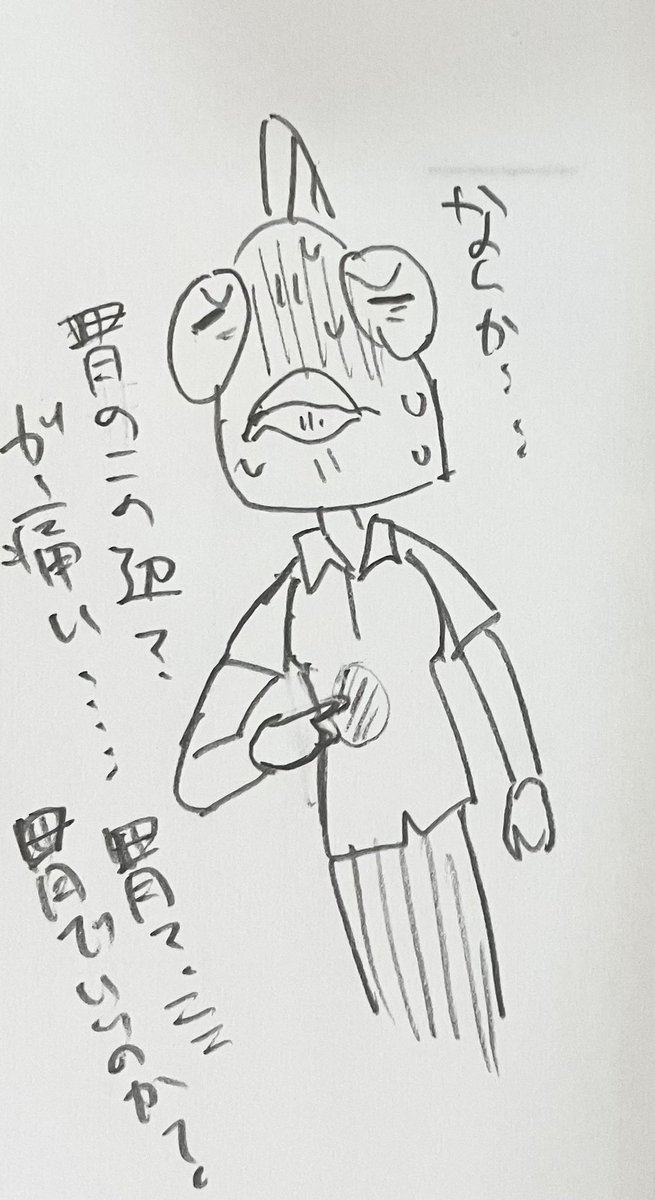 なんか…
胃のこの辺?
が痛い……
胃?ここ
胃でいいのか?